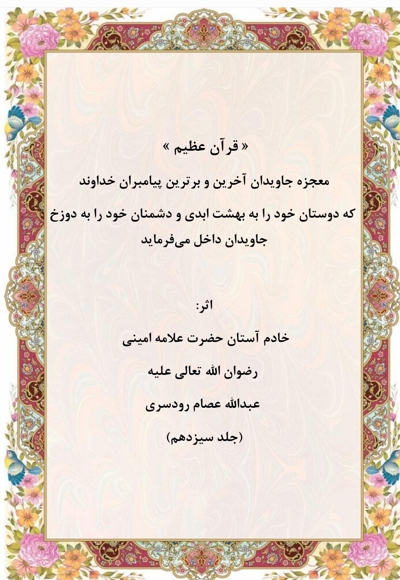 « قرآن عظیم »
معجزه جاویدان آخرین و برترین پیامبران خداوند
که دوستان خود را به بهشت ابدی و دشمنان خود را به دوزخ
جاویدان داخل می‌فرماید
اثر:
خادم آستان حضرت علامه امینی
رضوان الله تعالی علیه
عبدالله عصام رودسری
(جلد سیزدهم)